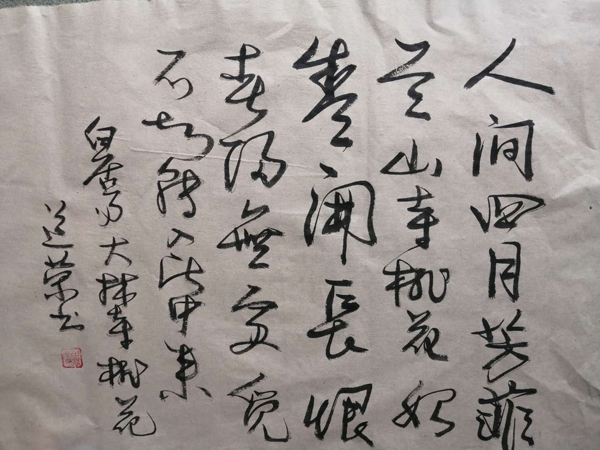 人间四月芳菲
尽山寺桃花始
盛開長恨
春归無处觅
不知转入此中来
白居易大林寺桃花
道荣书